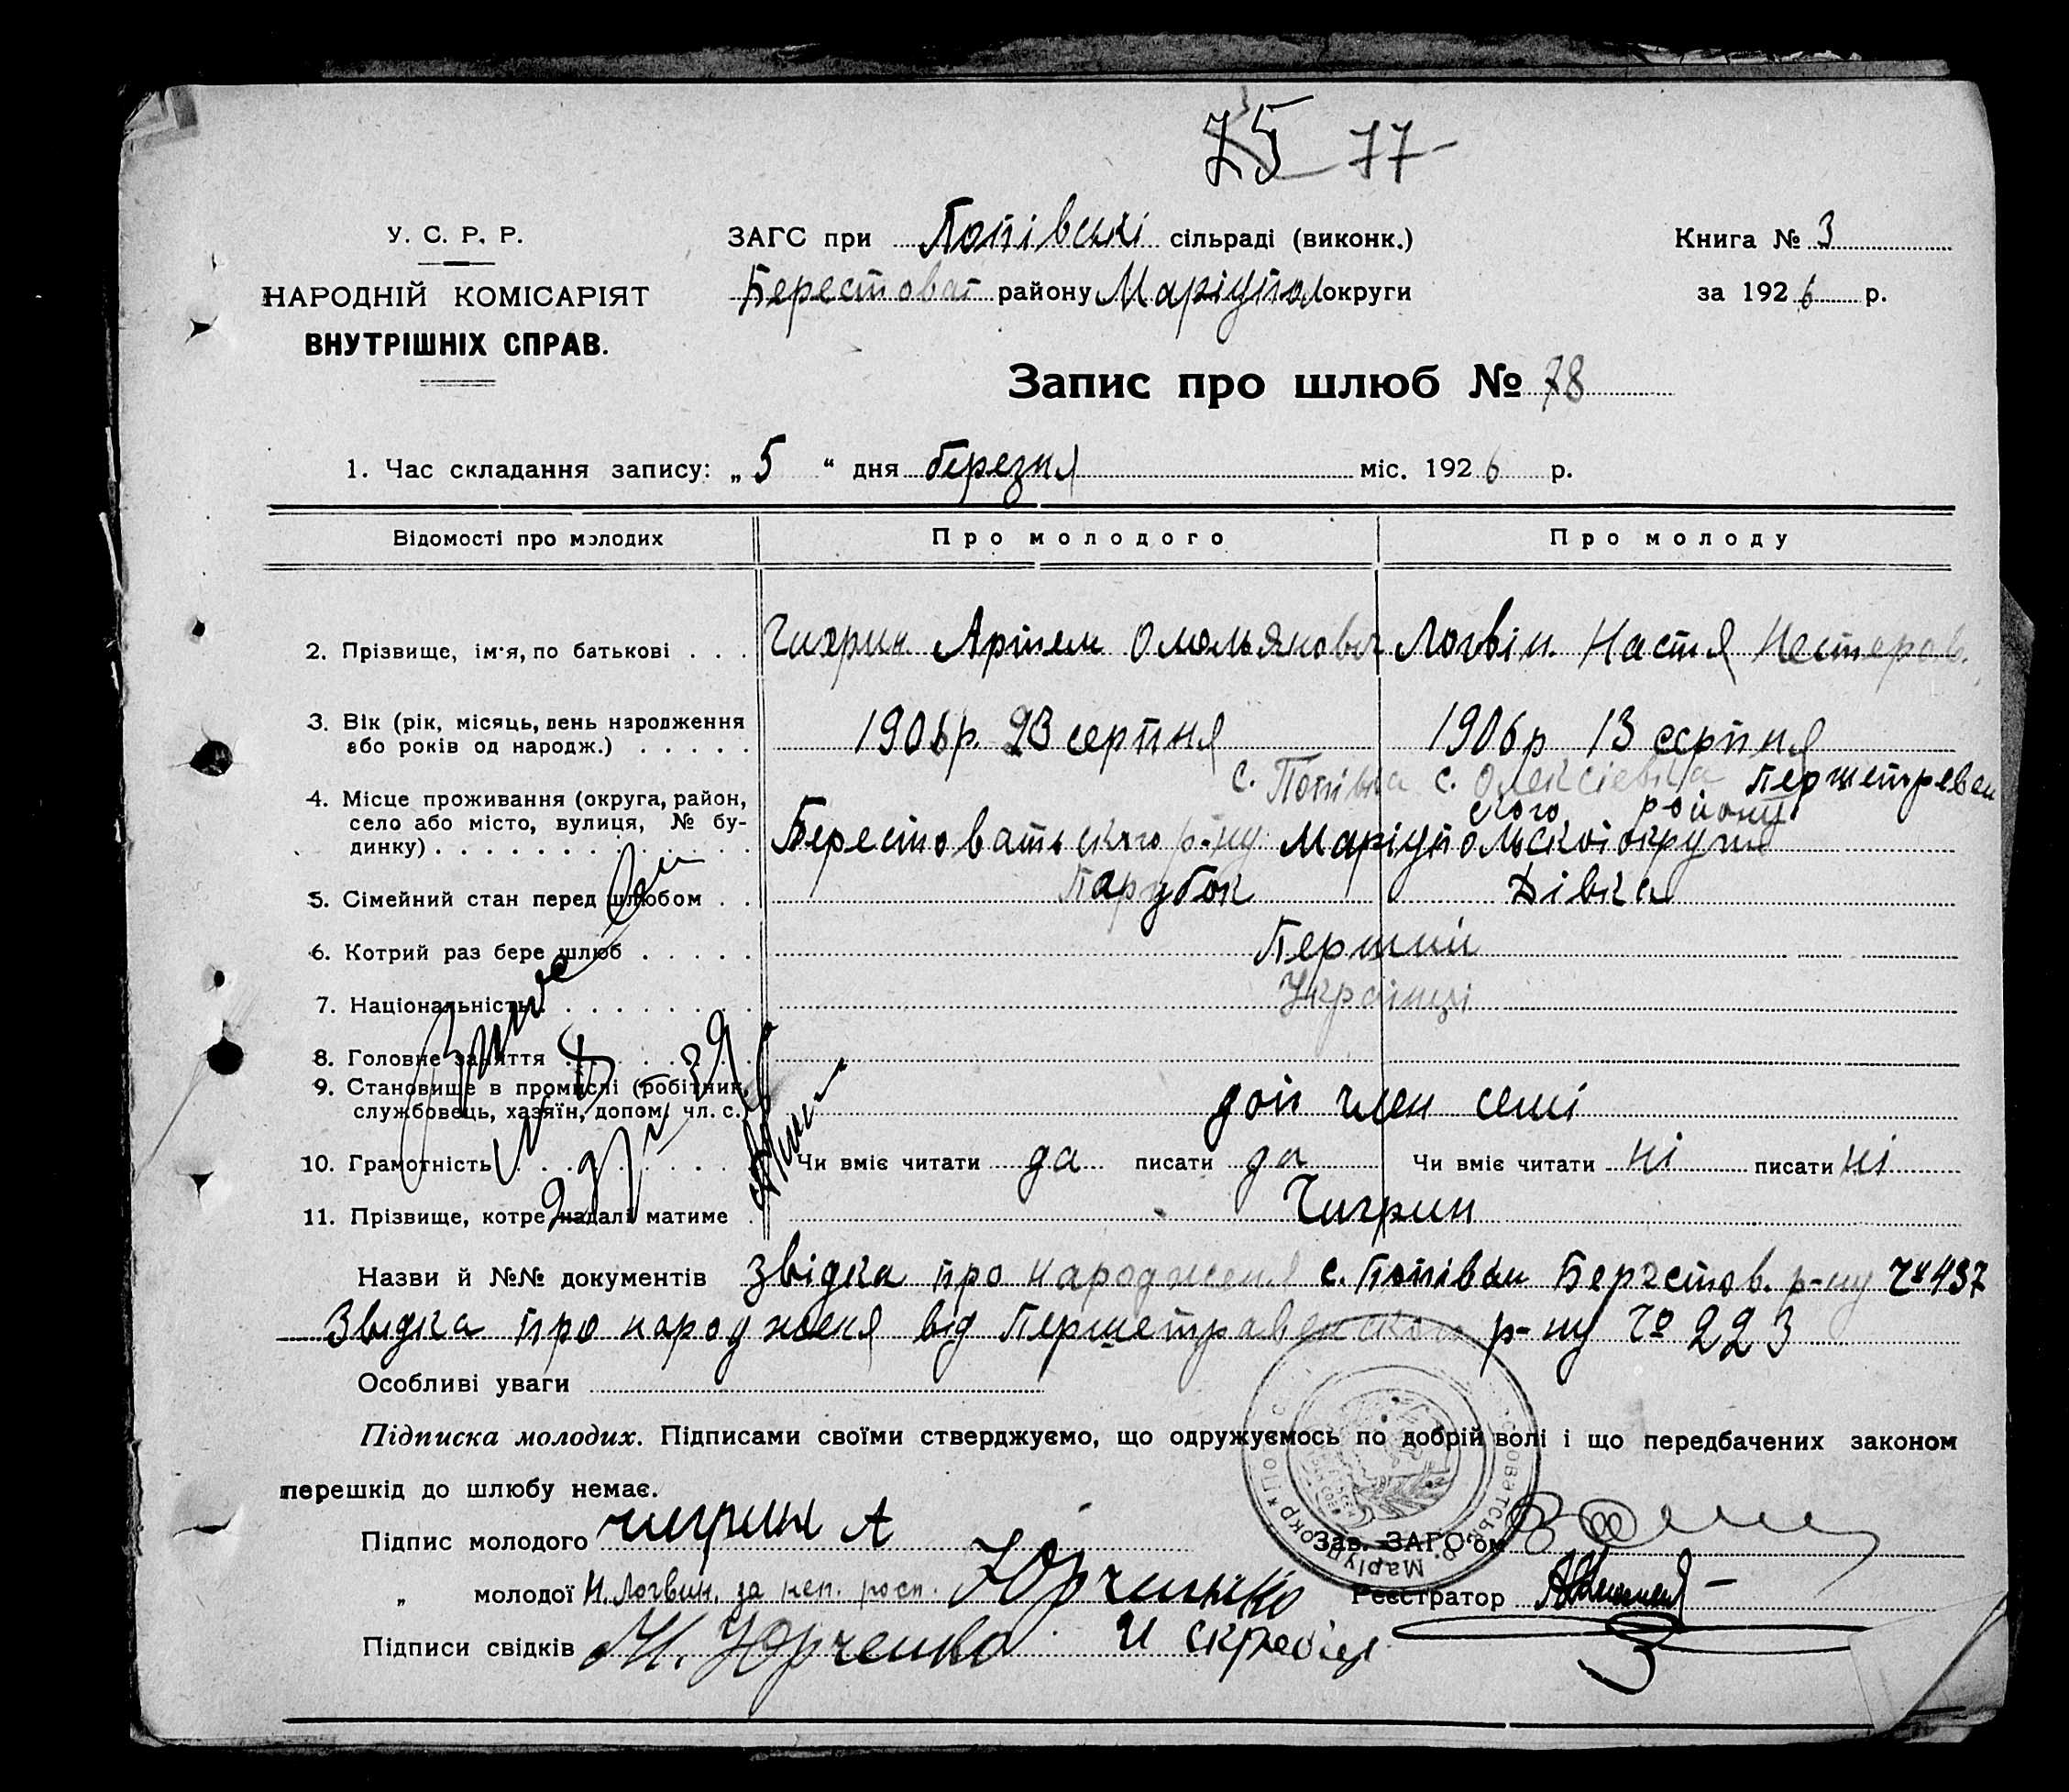 75 77
У. С. Р. Р.
НАРОДНІЙ КОМІСАРІЯТ
ВНУТРІШНІХ СПРАВ.
ЗАГС при Попівські сільраді (виконк.)
Берестоват району Маріупол округи
Книга № 3
за 1926 р.
Запис про шлюб № 78
1. Час складання запису: „5“ дня березня міс. 1926 р.
Відомості про молодих Про молодого Про молоду
2. Прізвище, ім'я, по батькові . . . Чигрин Артем Омельянович Логвін. Настя Нестеров.
3. Вік (рік, місяць, день народження 1906 р. 23 серпня 1906 р 13 серпня
або років од народж.) . . . . .
с. Попівка с. Олексіевка Першетревен
4. Місце проживання (округа, район, ского району
село або місто, вулиця, № бу- Берестоватьского р-ну Маріупольскоі округи
динку) . . . . . . . . . . . . . .
5. Сімейний стан перед шлюбом . . Парубок Дівка
6. Котрий раз бере шлюб . . . . . Перший
7. Національність . . . . . . . . . Українці
8. Головне заняття . . . . . . . .
9. Становище в промислі (робітник,
службовець, хазяїн, допом. чл. с.) доп член семі
10. Грамотність . . . . . . . . . Чи вміє читати да писати да Чи вміє читати ні писати ні
11. Прізвище, котре надалі матиме . Чигрин
Назви й №№ документів Звідка про народженя с. Попівки Берестов. р-ну № 437
Звідка про народженя від Першетравенского р-ну № 223
Особливі уваги
Підписка молодих. Підписами своїми стверджуємо, що одружуємось по добрій волі і що передбачених законом
перешкід до шлюбу немає.
Підпис молодого чигрин А Зав. ЗАГС'ом
„ молодої Н. Логвин. за неп. росп. Юрченко Реєстратор
Підписи свідків М. Юрченко И